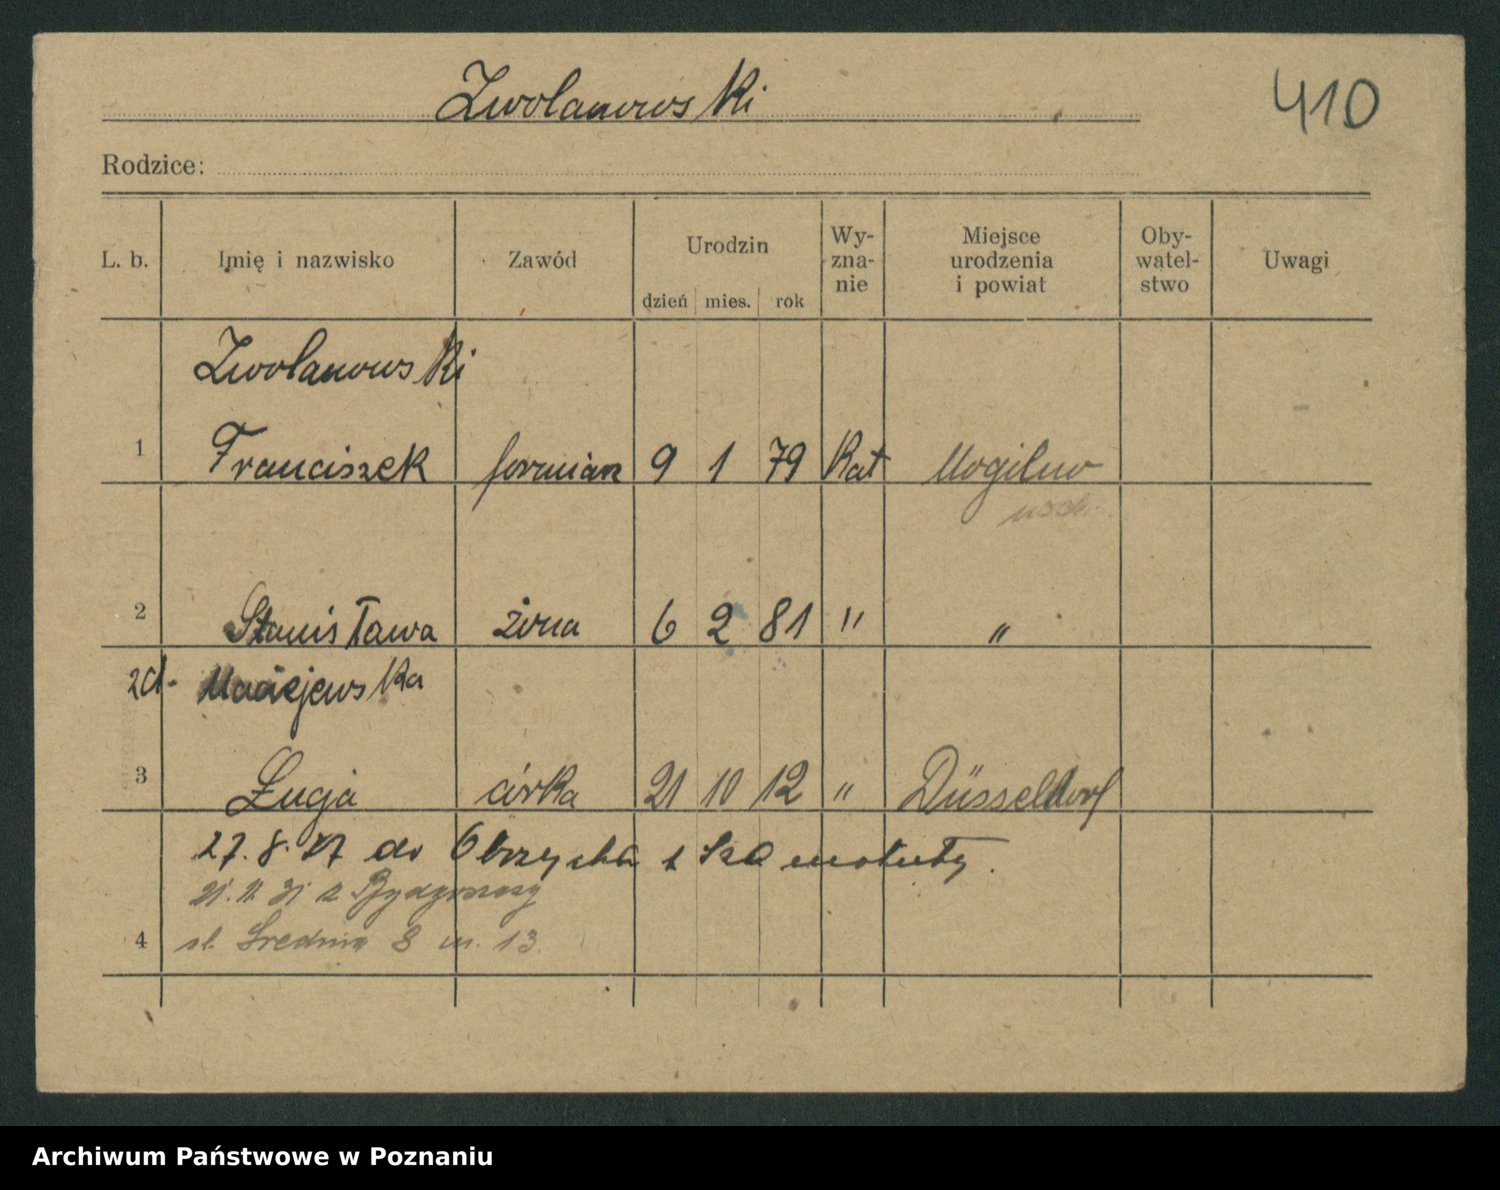 Zwolanowski
410
Rodzice:
L. b. Imię i nazwisko Zawód Urodzin dzień mies. rok Wy-zna-nie Miejsce urodzenia i powiat Oby-watel-stwo Uwagi
Zwolanowski
1 Franciszek formian 9 1 79 Kat Mogilno
2 Stanisława żona 6 2 81 " "
zd. Maciejewska
3 Łucja córka 21 10 12 " Düsseldorf
27. 8. 27 do Obrzycka z Szamotuły.
21. 11. 31 z Bydgoszczy
4 ul. Średnia 8 m. 13.
Archiwum Państwowe w Poznaniu